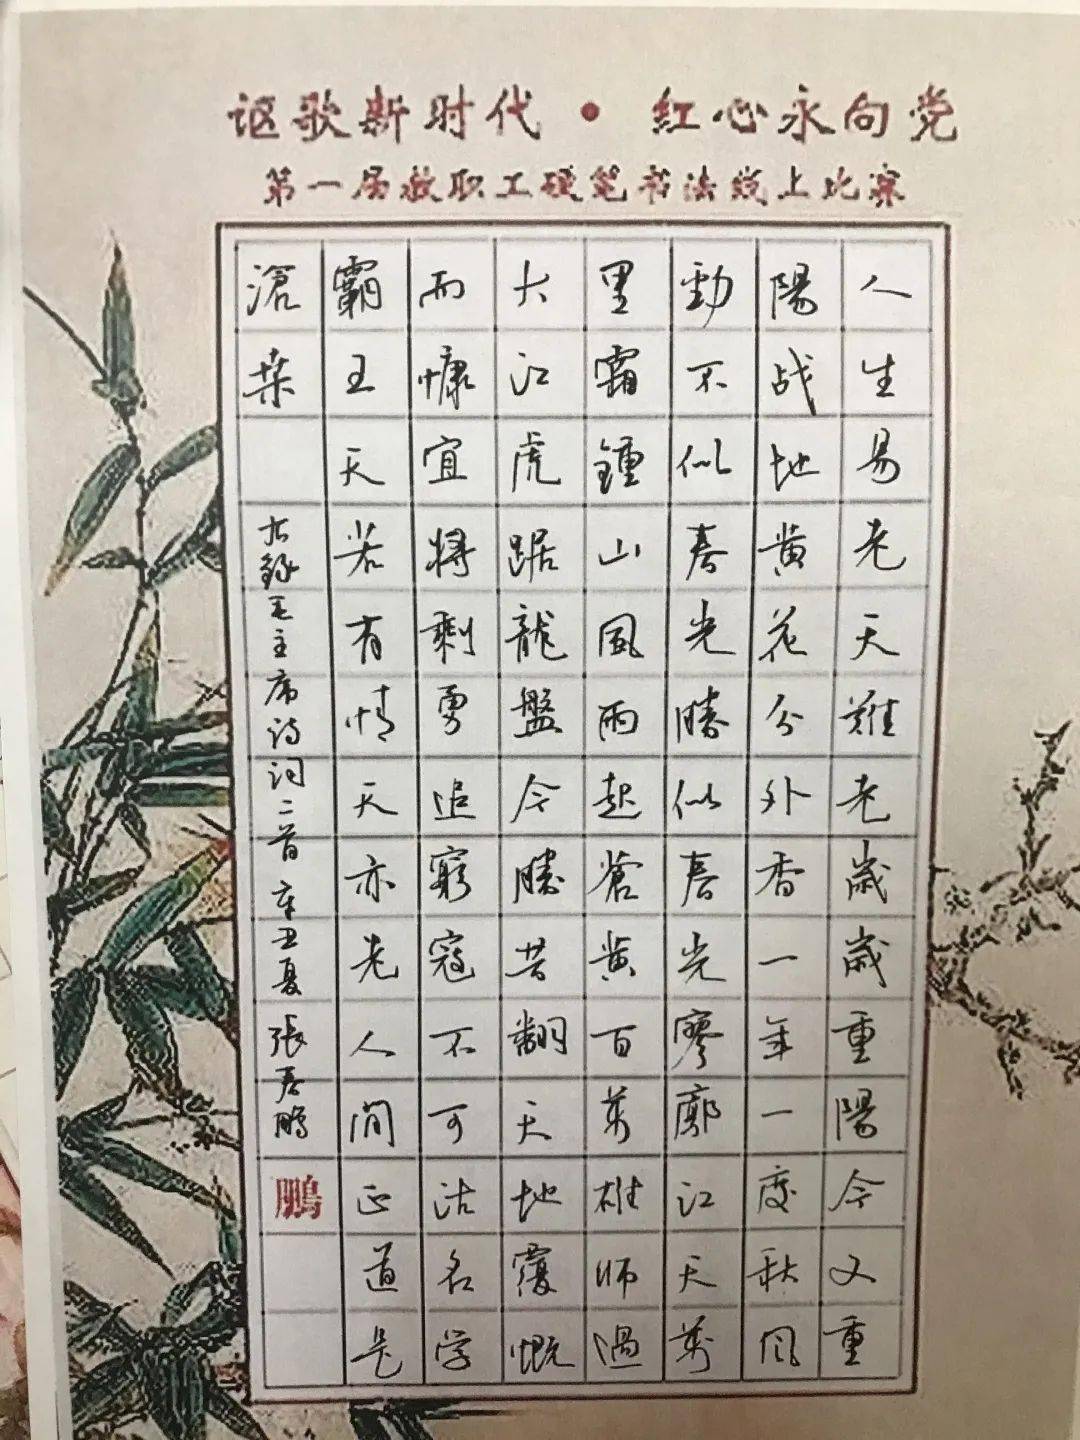 讴歌新时代·红心永向党
第一届教职工硬笔书法线上比赛
人生易老天難老歲歲重陽今又重
陽战地黄花分外香一年一度秋风
勁不似春光勝似春光廖廓江天萬
里霜鍾山風雨起蒼黄百萬雄师過
大江虎踞龍盤今勝昔翻天地覆慨
而慷宜将剩勇追窮寇不可沽名学
霸王天若有情天亦老人间正道是
滄桑
右錄毛主席诗词二首辛丑夏張春鵬
鵬